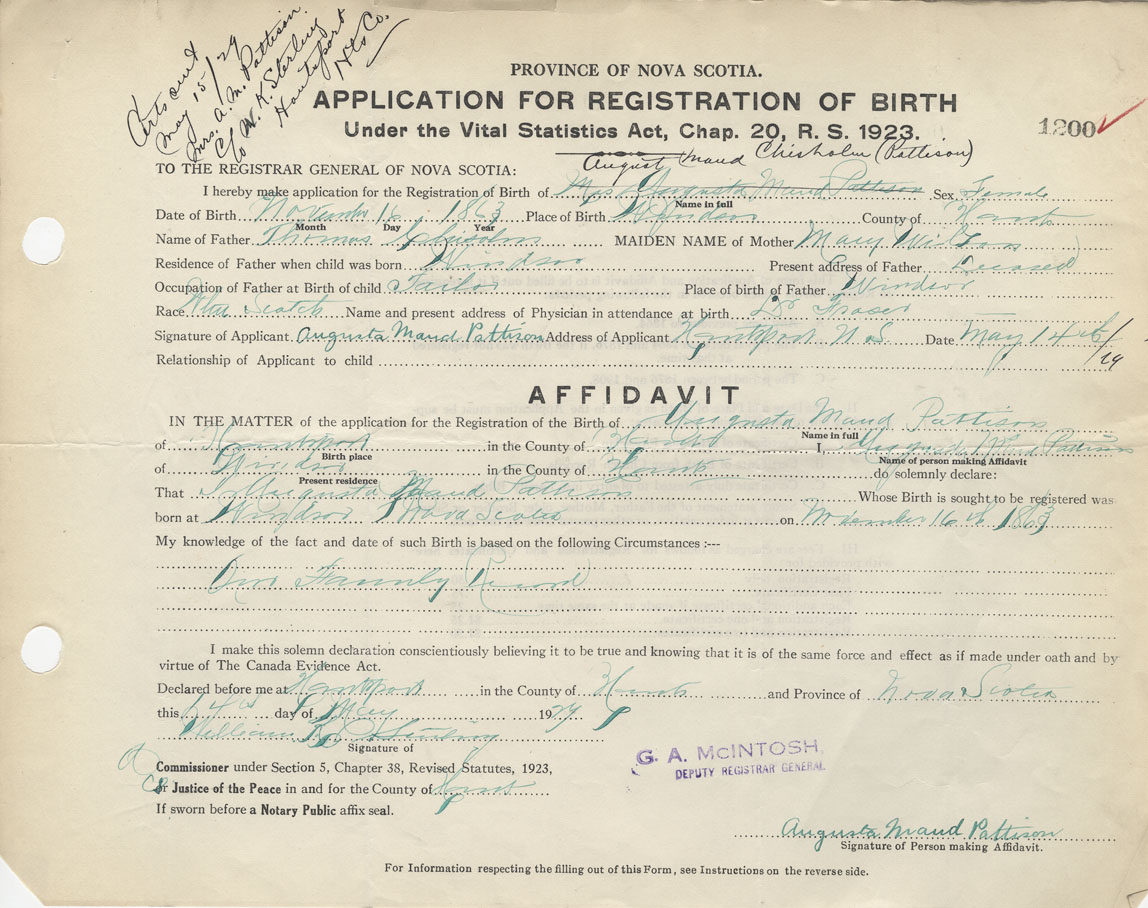 Certs out
May 15/29
Mrs. A. M. Pattison
c/o W. K. Sterling
Hantsport
Hts Co.
PROVINCE OF NOVA SCOTIA.
APPLICATION FOR REGISTRATION OF BIRTH
1200
Under the Vital Statistics Act, Chap. 20, R. S. 1923.
August Maud Chisholm (Pattison)
TO THE REGISTRAR GENERAL OF NOVA SCOTIA:
I hereby make application for the Registration of Birth of Mrs Augusta Maud Pattison Sex Female
Name in full
Date of Birth November 16, 1863 Place of Birth Windsor County of Hants
Month Day Year
Name of Father Thomas Chisholm MAIDEN NAME of Mother Mary
Residence of Father when child was born Windsor Present address of Father Deceased
Occupation of Father at Birth of child Tailor Place of birth of Father Windsor
Race Scotch Name and present address of Physician in attendance at birth Dr Fraser
Signature of Applicant Augusta Maud Pattison Address of Applicant Hantsport N.S. Date May 14th/29
Relationship of Applicant to child
AFFIDAVIT
IN THE MATTER of the application for the Registration of the Birth of Augusta Maud Pattison
Name in full
of Hantsport in the County of Hants I, Augusta Md Pattison
Birth place Name of person making Affidavit
of Windsor in the County of Hants do solemnly declare:
Present residence
That I Augusta Maud Pattison Whose Birth is sought to be registered was
born at Windsor Nova Scotia on November 16th 1863
My knowledge of the fact and date of such Birth is based on the following Circumstances :---
Our Family Record
I make this solemn declaration conscientiously believing it to be true and knowing that it is of the same force and effect as if made under oath and by
virtue of The Canada Evidence Act.
Declared before me at Hantsport in the County of Hants and Province of Nova Scotia
this 14th day of May 1929
William K Sterling
Signature of
A Commissioner under Section 5, Chapter 38, Revised Statutes, 1923,
Or Justice of the Peace in and for the County of Hants
If sworn before a Notary Public affix seal.
G. A. McINTOSH,
DEPUTY REGISTRAR GENERAL
Augusta Maud Pattison
Signature of Person making Affidavit.
For Information respecting the filling out of this Form, see Instructions on the reverse side.